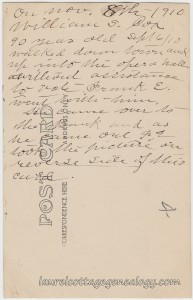 On Nov. 8th 1910
William G. Cox
90 years old Sept 6/10
walked down town and
up into the opera hall
without assistance
to vote Frank E.
went with him
He came over to
the bank and as
he came out
took the picture on
reverse side of this
card.
POST CARD
CORRESPONDENCE HERE
laurelcottagegenealogy.com